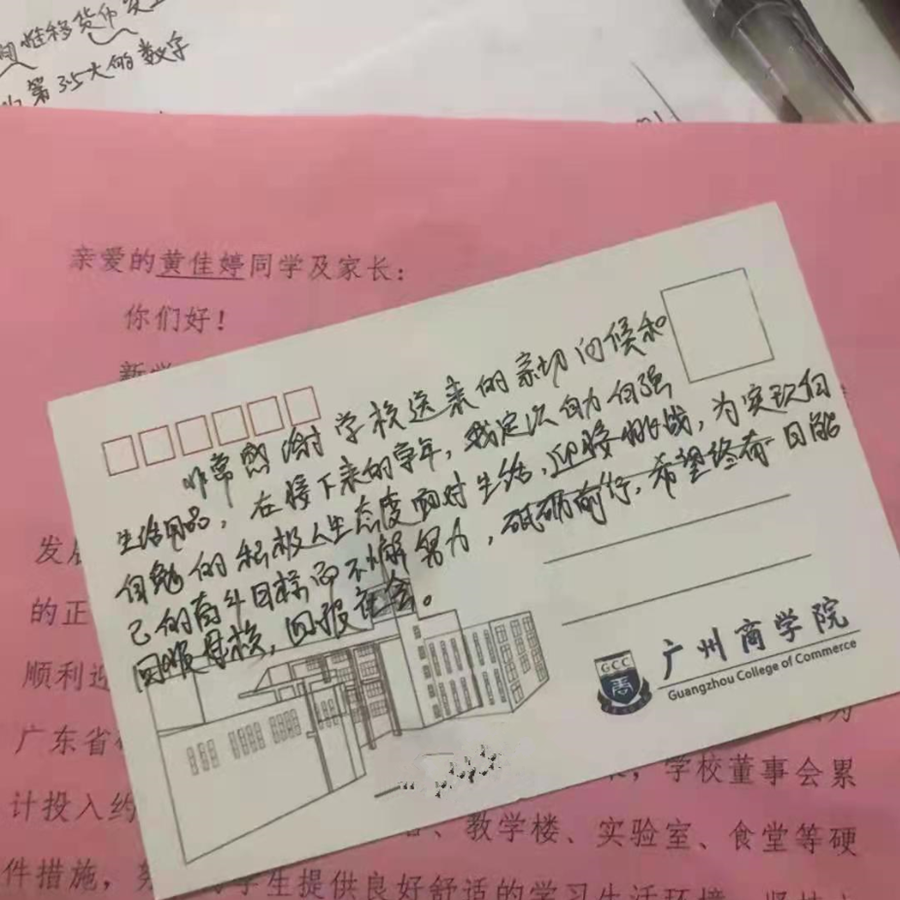 推移货币
第35大的数字
亲爱的黄佳婷同学及家长：
你们好！
非常感谢学校送来的亲切问候和
生活用品，在接下来的学年，我定以自力自强
自勉的积极人生态度面对生活，迎接挑战，为实现自
己的奋斗目标而不懈努力，砥砺前行，希望终有一日能
回顺母校，回报社会。
发
的正
顺利迎
广州商学院
GCC
Guangzhou College of Commerce
广东省
，学校董事会累
计投入约
、教学楼、实验室、食堂等硬
件措施，
学生提供良好舒适的学习生活环境